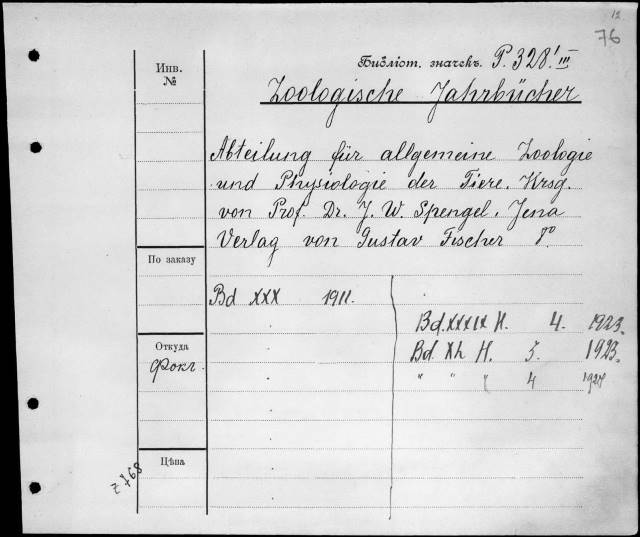 12
76
Библіот. значекъ P. 328! III
Инв. №
Zoologische Jahrbücher
Abteilung für allgemeine Zoologie
und Physiologie der Tiere. Krsg.
von Prof. Dr. J. W. Spengel. Jena
Verlag von Gustav Fischer 8°.
По заказу
Bd XXX 1911.
Bd. XXXIX H. 4. 1923.
Откуда
Bd. Xh H. 3. 1923.
Фокг.
" " " 4 1924
Цѣна
z 768